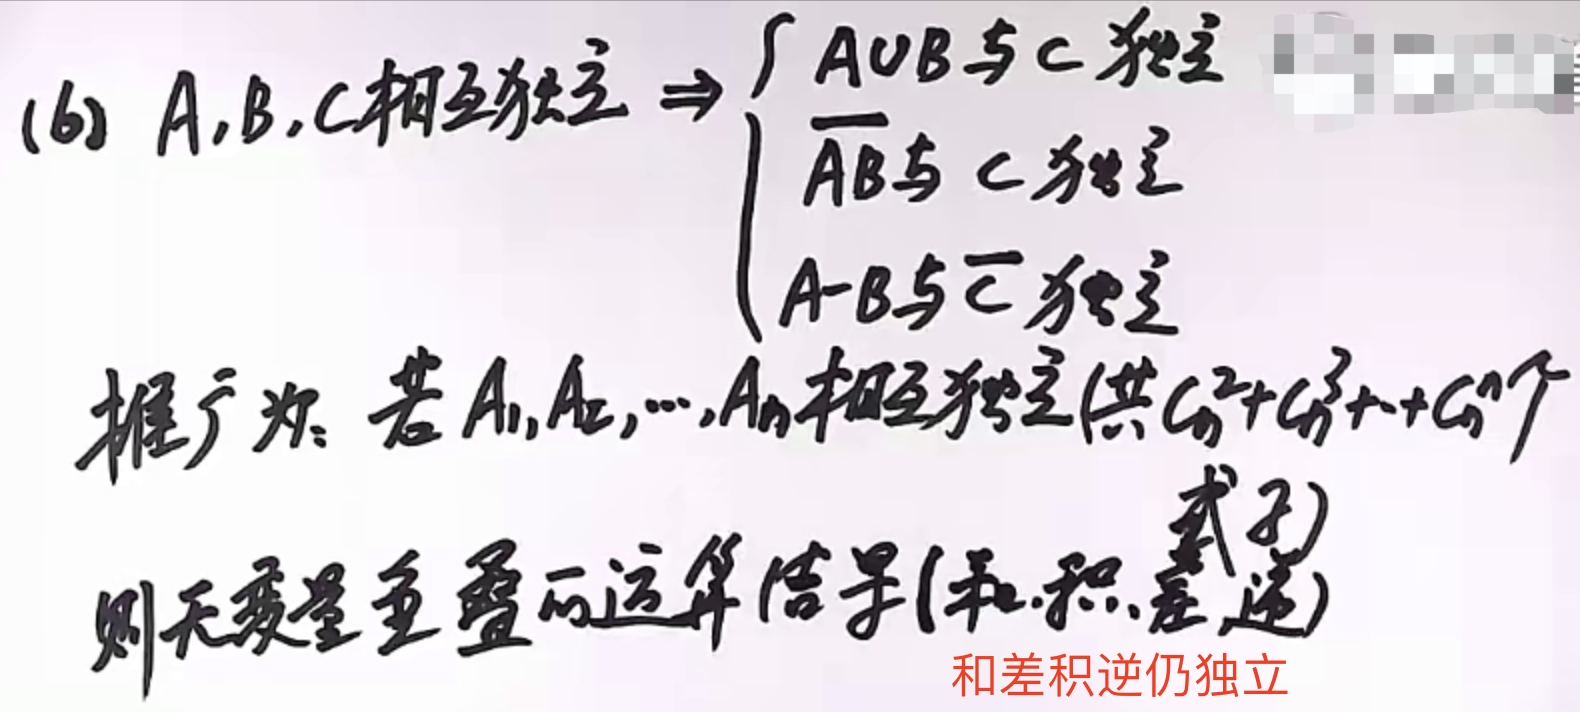 (6) A,B,C相互独立 ⇒ { A∪B与C独立
\overline{AB}与C独立
A-B与\overline{C}独立
推广为: 若A₁,A₂,…,Aₙ相互独立(共Cₙ²+Cₙ³+…+Cₙⁿ个
式子)
则无变量重叠的运算结果(和.积.差.逆)
和差积逆仍独立